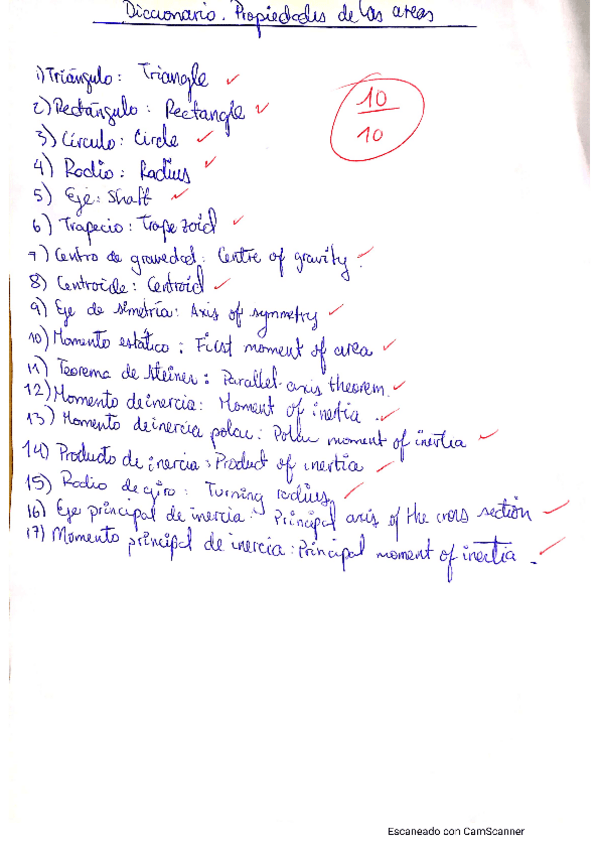 Diccionario. Propiedades de las areas
1) Triángulo: Triangle
2) Rectángulo: Rectangle
10
10
3) Círculo: Circle
4) Radio: Radius
5) Eje: Shaft
6) Trapecio: Trapezoid
7) Centro de gravedad: Centre of gravity.
8) Centroide: Centroid
9) Eje de simetría: Axis of symmetry
10) Momento estático: First moment of area
11) Teorema de Steiner: Parallel-axis theorem.
12) Momento de inercia: Moment of inertia.
13) Momento de inercia polar: Polar moment of inertia
14) Producto de inercia: Product of inertia
15) Radio de giro: Turning radius,
16) Eje principal de inercia: Principal axis of the cross section
17) Momento principal de inercia: Principal moment of inertia.
Escaneado con CamScanner